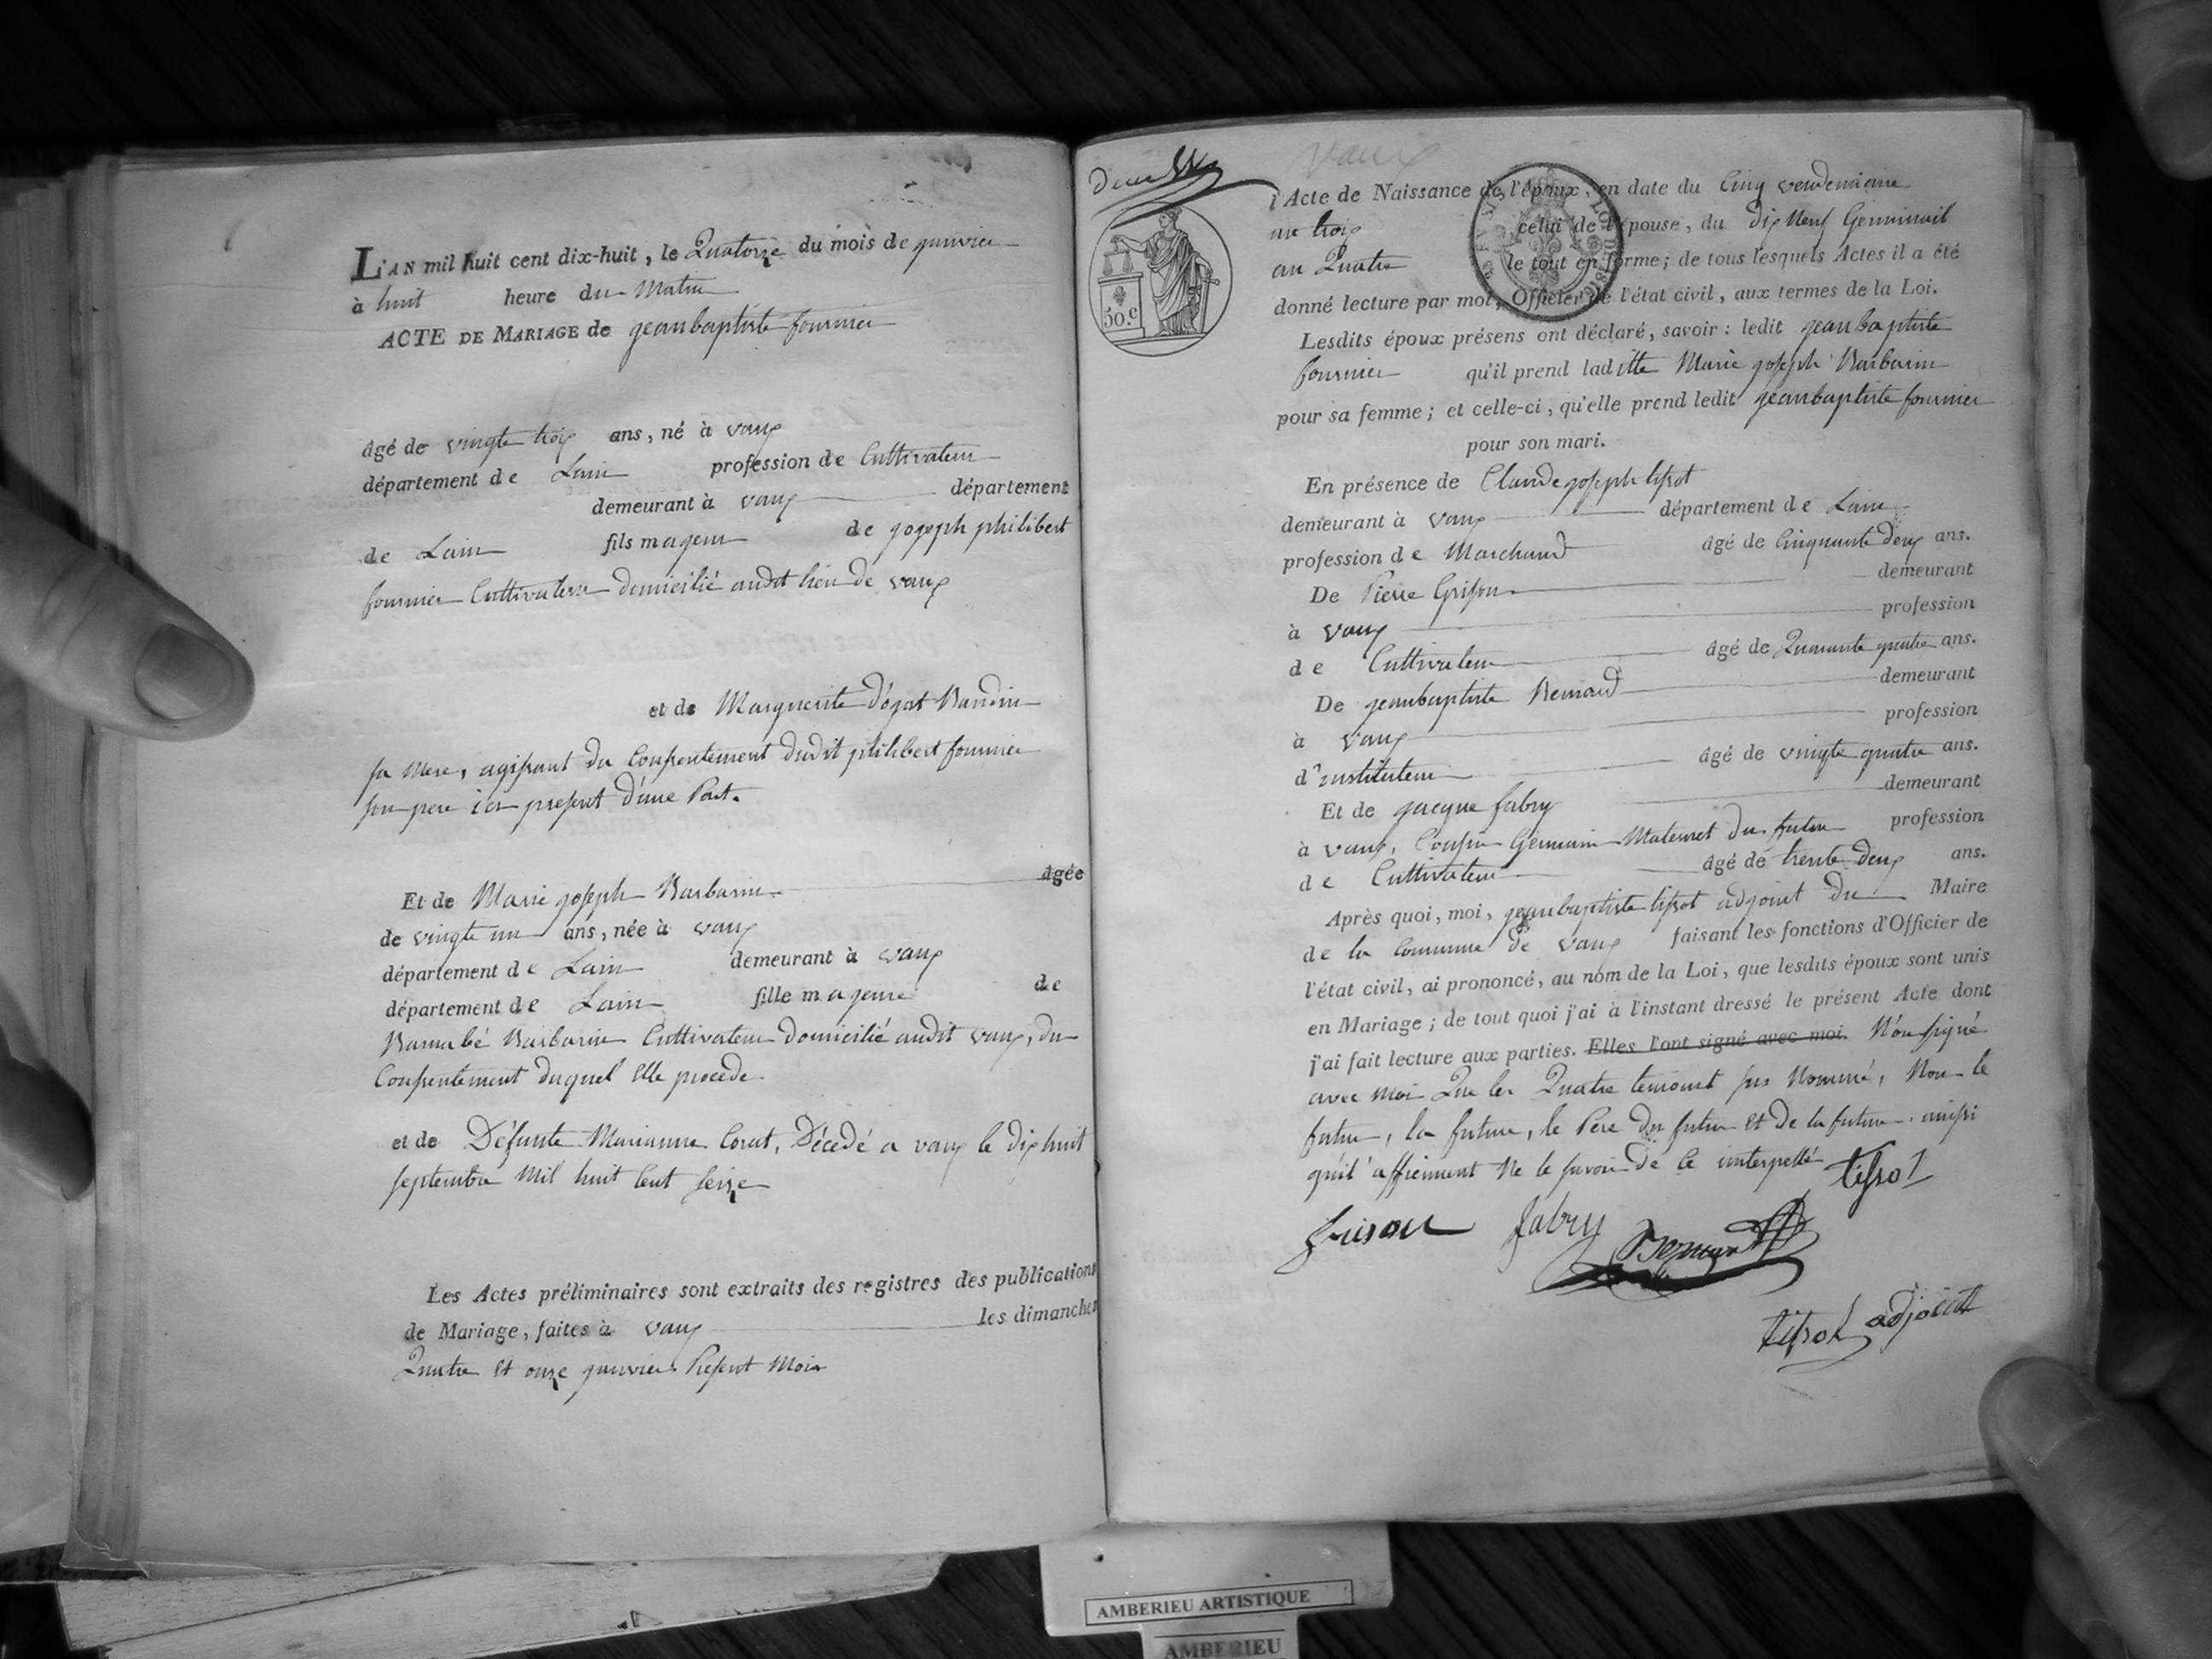 L'AN mil huit cent dix-huit, le Quatorze du mois de janvier
à huit heure du Matin
ACTE DE MARIAGE de jeanbaptiste fournier
âgé de vingte trois ans, né à vaux
département de Lain profession de Cultivateur
demeurant à vaux département
de Lain fils majeur de joseph philibert
fournier Cultivateur domicilié audit lieu de vaux
et de Marguerite Baudin
sa Mere, agissant du Consentement dudit philibert fournier
son pere ici present d'une Part.
Et de Marie joseph Barbarin âgée
de vingte un ans, née à vaux
département de Lain demeurant à vaux
département de Lain fille majeure de
Barnabé Barbarin Cultivateur domicilié audit vaux, du
Consentement duquel Elle procede
et de Défunte Marianne Corat, Décedé a vaux le dix huit
septembre Mil huit Cent seize
Les Actes préliminaires sont extraits des registres des publications
de Mariage, faites à vaux les dimanches
Quatre et onze janvier Present Mois
vaux
l'Acte de Naissance de l'époux, en date du Cinq vendemiaire
an trois celui de l'épouse, du dix Neuf Germinail
an Quatre le tout en forme; de tous lesquels Actes il a été
donné lecture par moi, Officier de l'état civil, aux termes de la Loi.
50.c
Lesdits époux présens ont déclaré, savoir: ledit jeanbaptiste
fournier qu'il prend laditte Marie joseph Barbarin
pour sa femme; et celle-ci, qu'elle prend ledit jeanbaptiste fournier
pour son mari.
En présence de Claude joseph tissot
demeurant à vaux département de Lain
profession de Marchand âgé de Cinquante deux ans.
De Pierre Grison demeurant
à vaux profession
de Cultivateur âgé de Quarante quatre ans.
De jeanbaptiste Bernard demeurant
à vaux profession
d'instituteur âgé de vingte quatre ans.
Et de jacque fabry demeurant
à vaux, Cousin Germain Maternet du futur profession
de Cultivateur âgé de trente deux ans.
Après quoi, moi, jeanbaptiste tissot adjoint du Maire
de la Commune de vaux faisant les fonctions d'Officier de
l'état civil, ai prononcé, au nom de la Loi, que lesdits époux sont unis
en Mariage; de tout quoi j'ai à l'instant dressé le présent Acte dont
j'ai fait lecture aux parties. Elles l'ont signé avec moi. N'on signé
avec moi Que les Quatre temoint sus Nommé, Non le
futur, la future, le Pere du futur et de la future. ainsi
qu'il affirment Ne le savoir de Ce interpellé tissot
grison fabry Bernard
tissot adjoint
AMBERIEU ARTISTIQUE
AMBERIEU